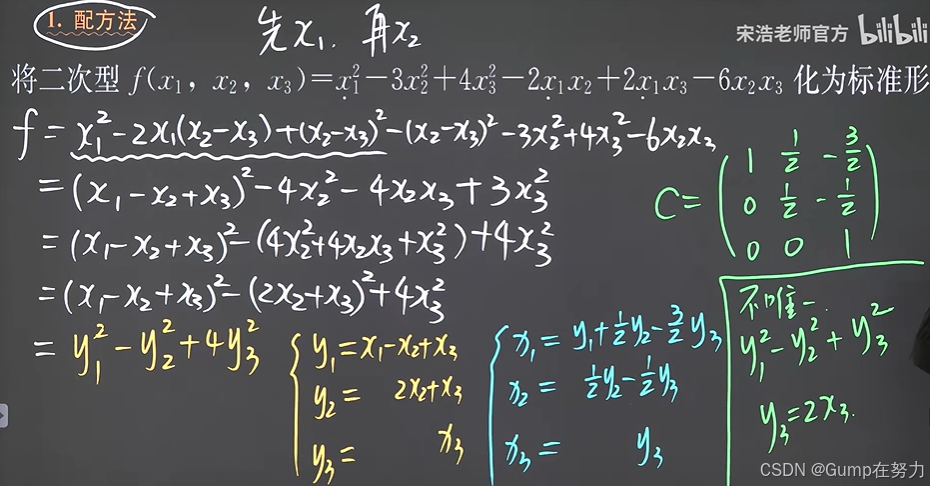 1. 配方法
先x₁. 再x₂
宋浩老师官方 bilibili
将二次型 f(x₁, x₂, x₃)=x₁²-3x₂²+4x₃²-2x₁x₂+2x₁x₃-6x₂x₃ 化为标准形
f = x₁²-2x₁(x₂-x₃)+(x₂-x₃)²-(x₂-x₃)²-3x₂²+4x₃²-6x₂x₃
=(x₁-x₂+x₃)²-4x₂²-4x₂x₃+3x₃²
=(x₁-x₂+x₃)²-(4x₂²+4x₂x₃+x₃²)+4x₃²
=(x₁-x₂+x₃)²-(2x₂+x₃)²+4x₃²
= y₁²-y₂²+4y₃²
y₁=x₁-x₂+x₃
y₂= 2x₂+x₃
y₃= x₃
x₁= y₁+½y₂-3/2 y₃
x₂= ½y₂-½y₃
x₃= y₃
C=
1 ½ -3/2
0 ½ -½
0 0 1
不唯一.
y₁²-y₂²+y₃²
y₃=2x₃.
CSDN @Gump在努力